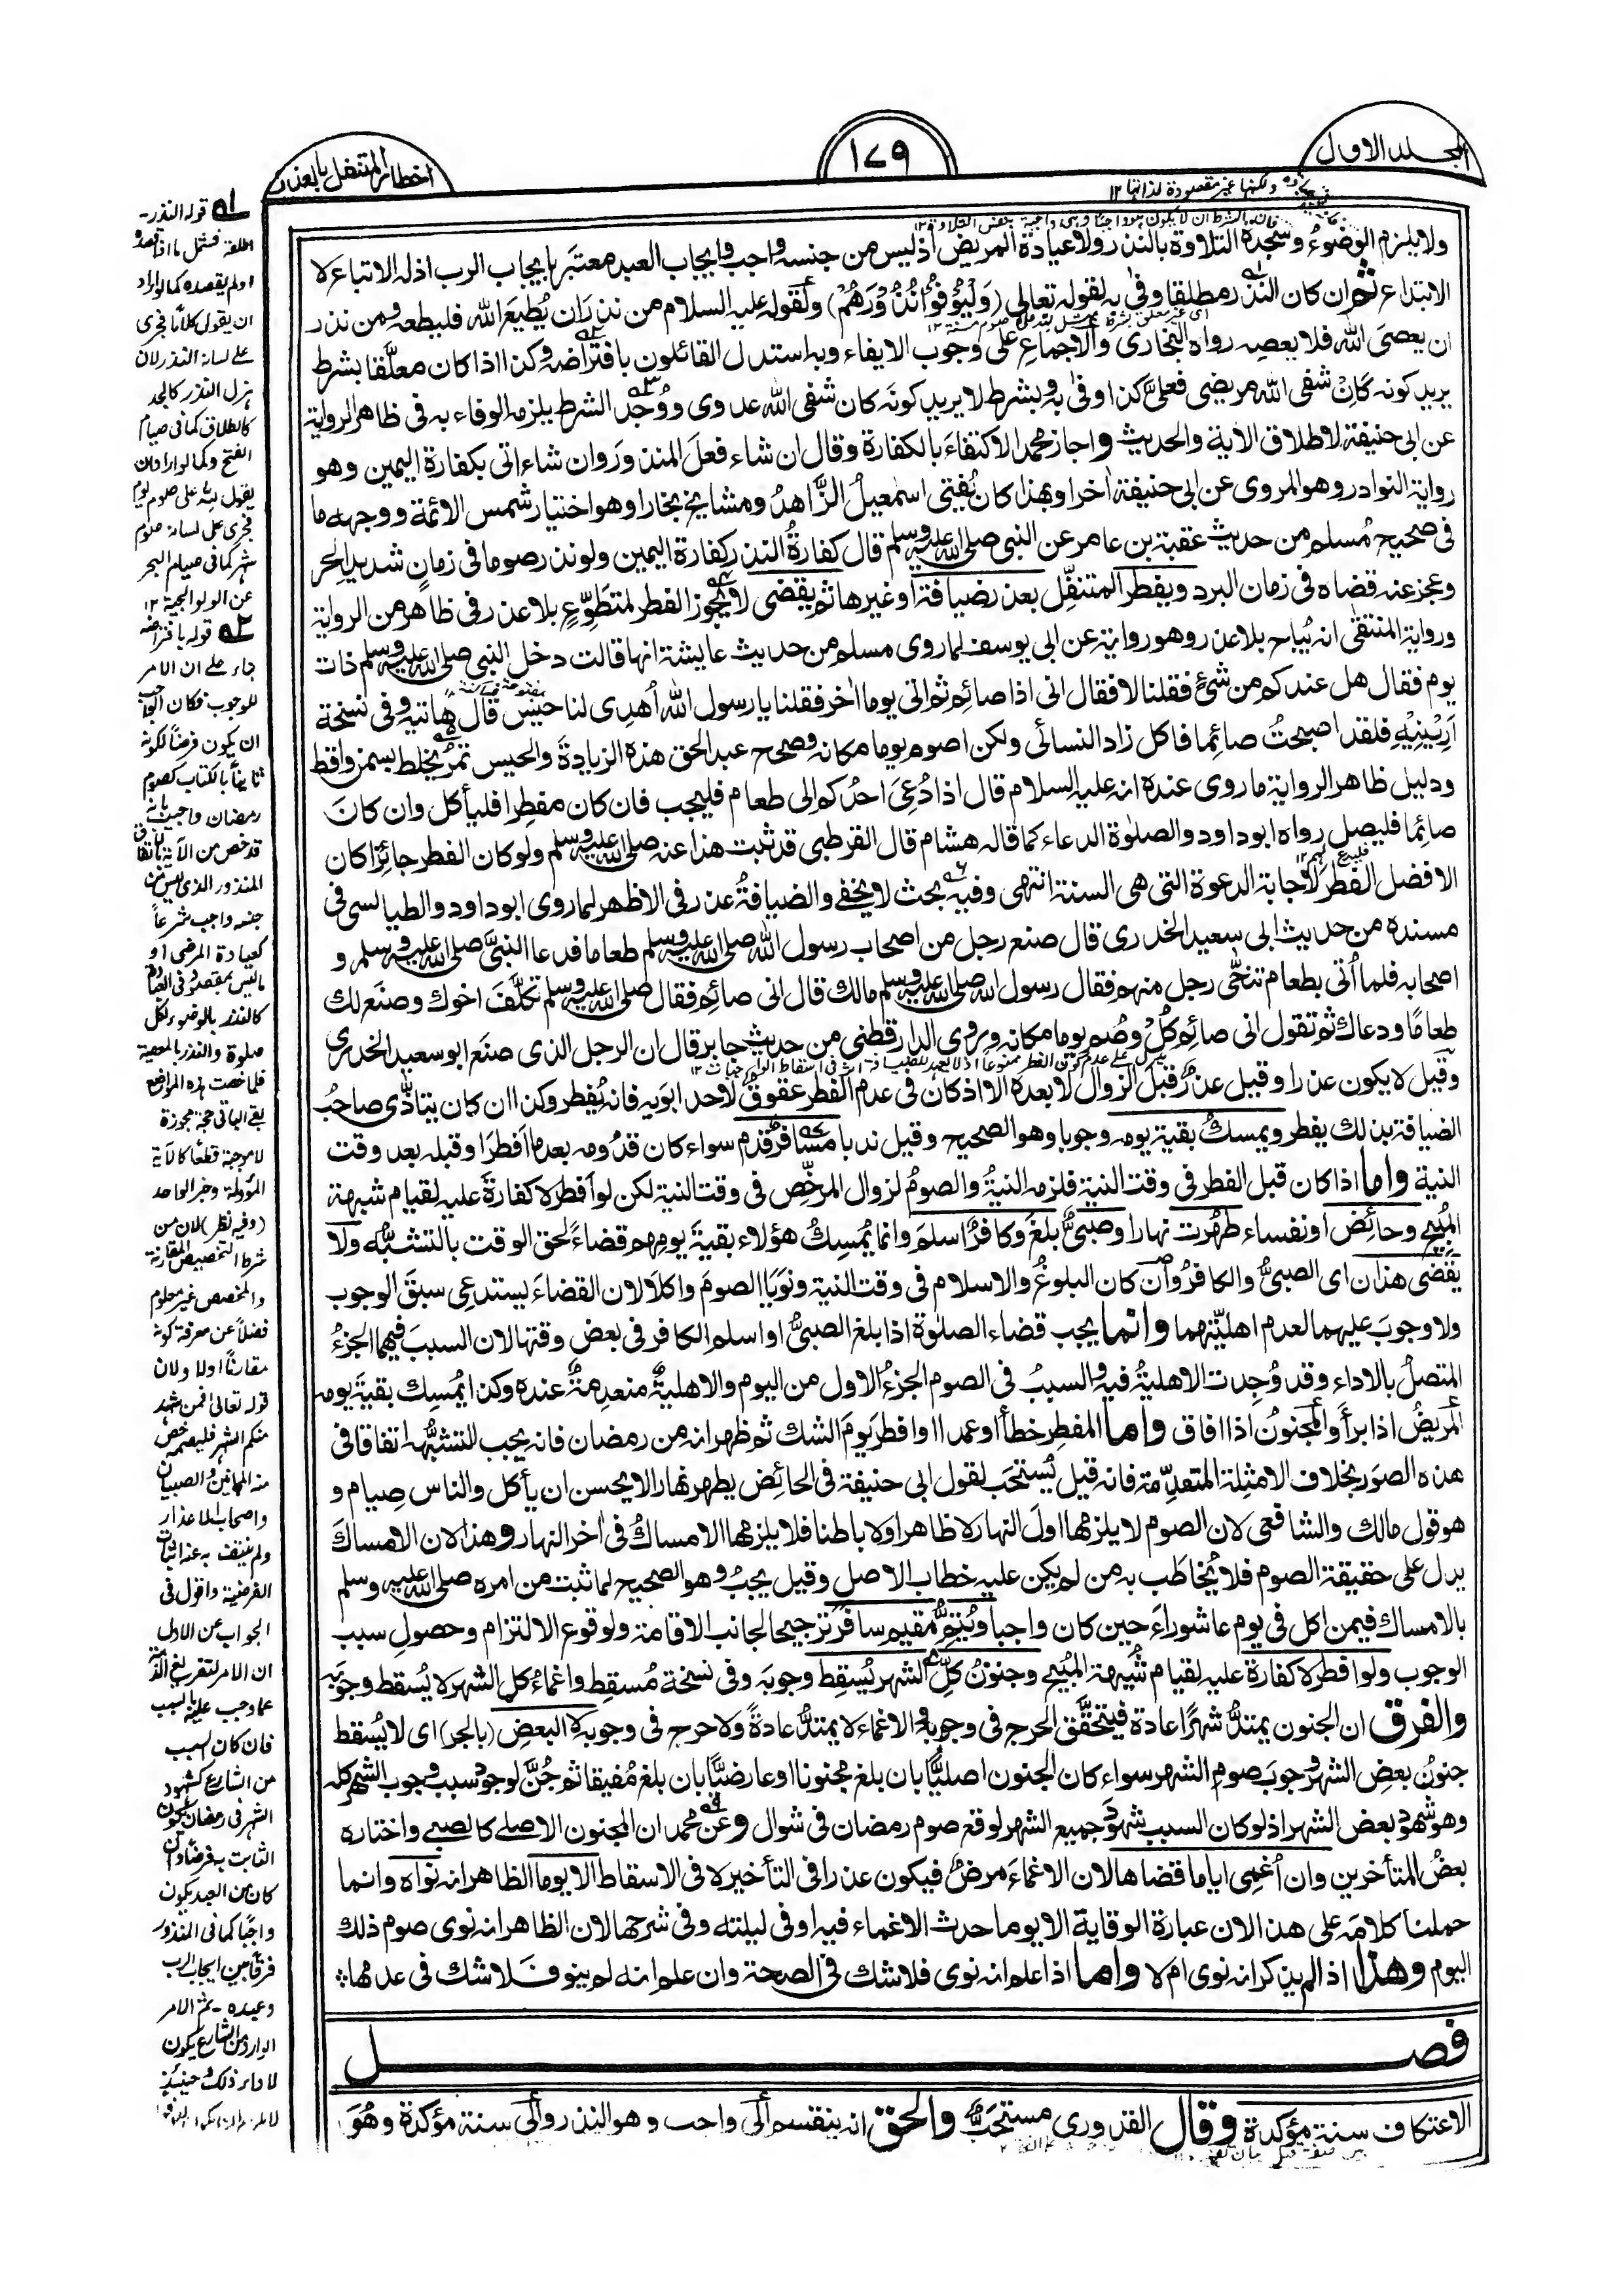 المجلد الاول
١٧٩
افطار المتنفل بالعذر
ولا يلزم الوضوءُ وسجدة التلاوة بالنذر ولا عيادة المريض اذ ليس من جنسه واجب وايجاب العبد معتبر بايجاب الرب اذ له الاتباع لا
الابتداع ثم ان كان النذر مطلقا وفىٰ به لقوله تعالى (وَلْيُوفُوْا نُذُوْرَهُمْ) ولقوله عليه السلام من نذر ان يُطيعَ الله فليطعه ومن نذر
ان يعصىَ الله فلا يعصه رواه البخارى والاجماع على وجوب الايفاء وبه استدل القائلون بافتراضه وكذا اذا كان معلَّقا بشرط
يريد كونه كَاِنْ شفى الله مريضى فعلىَّ كذا وفىٰ به وبشرط لا يريد كونَه كان شفى الله عدوى ووُجد الشرط يلزمه الوفاء به فى ظاهر الرواية
عن ابى حنيفة لاطلاق الاٰية والحديث واجاز محمد الاكتفاءَ بالكفارة وقال ان شاء فعلَ المنذورَ وان شاء اتى بكفارة اليمين وهو
رواية النوادر وهو المروى عن ابى حنيفة اٰخرا وبهذا كان يُفتى اسمٰعيلُ الزَّاهدُ ومشايخ بخارا وهو اختيار شمس الائمة ووجهه ما
فى صحيح مُسلم من حديث عقبة بن عامر عن النبى صلى الله عليه وسلم قال كفارةُ النذر كفارة اليمين ولو نذر صوما فى زمان شديد الحر
وعجز عنه قضاه فى زمان البرد ويفطر المتنفِّل بعذر ضيافة او غيرها ثم يقضى لا يجوز الفطر لمتطوِّعٍ بلا عذر فى ظاهر من الرواية
ورواية المنتقٰى انه يُباح بلا عذر وهو رواية عن ابى يوسف لما روى مسلم من حديث عايشة انها قالت دخل النبى صلى الله عليه وسلم ذات
يوم فقال هل عندكم من شئ فقلنا لا فقال انى اذا صائم ثم اتى يوما اٰخر فقلنا يا رسول الله اُهدِى لنا حَيْس قال هاتيه وفى نسخة
اَرِيْنِيْهِ فلقد اصبحتُ صائما فاكل زاد النسائى ولكن اصوم يوما مكانه وصحح عبد الحق هذه الزيادةَ والحيس تمر يُخلط بسمن واقط
ودليل ظاهر الرواية ما روى عنده انه عليه السلام قال اذا دُعِىَ احدُكم الى طعام فليجب فان كان مفطرا فليأكل وان كانَ
صائما فليصل رواه ابو داود والصلوٰة الدعاء كما قاله هشام قال القرطبى قد ثبت هذا عنه صلى الله عليه وسلم ولو كان الفطر جائزا كان
الافضل الفطرَ لاجابة الدعوة التى هى السنة انتهى وفيه بحث لا يخفى والضيافةُ عذر فى الاظهر لما روى ابو داود والطيالسى فى
مسنده من حديث ابى سعيد الخدرى قال صنع رجل من اصحاب رسول الله صلى الله عليه وسلم طعاما فدعا النبىَّ صلى الله عليه وسلم و
اصحابه فلما اُتى بطعام تنحّٰى رجل منهم فقال رسول الله صلى الله عليه وسلم مالك قال انى صائم فقال صلى الله عليه وسلم تكلَّفَ اخوك وصنَع لك
طعامًا ودعاك ثم تقول انى صائم كُلْ وصُم يوما مكانه وروى الدارقطنى من حديث جابر قال ان الرجل الذى صنَع ابو سعيد الخدرى
وقيل لا يكون عذرا وقيل عذرٌ قبل الزوال لا بعده الا اذ كان فى عدم الفطر عقوقٌ لاحد ابوَيه فانه يُفطر وكذا ان كان يتأذّى صاحبُ
الضيافة بذلك يفطر ويمسك بقيةَ يومه وجوبا وهو الصحيح وقيل ندبا مسافرٌ قدم سواء كان قدُومه بعد ما اَفطرَ او قبله بعد وقت
النية واما اذا كان قبل الفطر فى وقت النية فلزمه النيةُ والصومُ لزوال المرخّص فى وقت النية لكن لو اَفطر لا كفارةَ عليه لقيام شبهة
المُبيح وحائض او نفساء طهُرت نهارا وصبىٌّ بلغَ وكافرٌ اسلمَ وانما يُمسِكُ هؤلاء بقيةَ يومهم قضاءً لحق الوقت بالتشبُّه ولا
يقضى هذان اى الصبىُّ والكافرُ وان كان البلوغُ والاسلام فى وقت النية ونوَيا الصومَ واكلا لان القضاءَ يستدعى سبقَ الوجوب
ولا وجوبَ عليهما لعدم اهليّتهما وانما يجب قضاء الصلوٰة اذا بلغ الصبىُّ او اسلم الكافر فى بعض وقتها لان السببَ فيهما الجزءُ
المتصلُ بالاداء وقد وُجدت الاهليةُ فيه والسببُ فى الصوم الجزءُ الاول من اليوم والاهليةُ منعدمةٌ عنده وكذا يُمسِك بقيةَ يومه
المريضُ اذا برأَ والمجنونُ اذا افاق واما المفطر خطأً او عمدا او افطر يومَ الشك ثم ظهر انه من رمضان فانه يجب للتشبُّه اتفاقا فى
هذه الصور بخلاف الامثلة المتقدِّمة فانه قيل يُستحَب لقول ابى حنيفة فى الحائض يطهر نهارا لا يحسن ان يأكل والناس صِيام و
هو قول مالك والشافعى لان الصوم لا يلزمها اولَ النهار لا ظاهرا ولا باطنا فلا يلزمها الامساكُ فى اٰخر النهار وهذا لان الامساكَ
يدل على حقيقة الصوم فلا يُخاطَب به من لم يكن عليه خطاب الاصل وقيل يجبُ وهو الصحيح لما ثبت من امره صلى الله عليه وسلم
بالامساك فيمن اكل فى يوم عاشوراءَ حين كان واجبا ويُتِمُّ مقيم سافر ترجيحا لجانب الاقامة ولوقوع الالتزام وحصولِ سبب
الوجوب ولو افطر لا كفارة عليه لقيام شبهة المُبيح وجنونُ كلِّ الشهر يُسقِط وجوبَه وفى نسخة مُسقِط واغماءُ كلِ الشهر لا يُسقط وجوبَه
والفرق ان الجنون يمتدُّ شهرًا عادة فيتحقَّق الحرج فى وجوبه والاغماء لا يمتدُّ عادةً ولا حرج فى وجوبه لا البعض (بالجر) اى لا يُسقط
جنونُ بعضِ الشهر وجوبَ صوم الشهر سواء كان الجنون اصليًّا بان بلغ مجنونا او عارضيًّا بان بلغ مُفيقا ثم جُنَّ لوجود سبب وجوب الشهر كله
وهو شهودُ بعض الشهر اذ لو كان السبب شهودَ جميع الشهر لوقع صوم رمضان فى شوال وعن محمد ان المجنون الاصلى كالصبى واختاره
بعضُ المتأخرين وان اُغمِى اياما قضاها لان الاغماءَ مرضٌ فيكون عذرا فى التأخير لا فى الاسقاط الا يوما الظاهر انه نواه وانما
حملنا كلامَه على هذا لان عبارة الوقاية الا يوما حدث الاغماء فيه او فى ليلته وفى شرحها لان الظاهر انه نوى صوم ذلك
اليوم وهذا اذا لم يذكر انه نوى ام لا واما اذا علم انه نوى فلا شك فى الصحة وان علم انه لم ينو فلا شك فى عدمها
فصل
الاعتكاف سنة مؤكدة وقال القدورى مستحَبٌّ والحق انه ينقسم الى واجب وهو النذر والى سنة مؤكدة وهُوَ
قوله النذر-
اطلقه فشمل ما اذا قصده
او لم يقصده كما لو اراد
ان يقول كلامًا فجرى
على لسانه النذر لان
هزل النذر كالجد
كالطلاق كما فى صيام
الفتح وكما لو اراد ان
يقول لله على صوم يوم
فجرى على لسانه صوم
شهر كما فى صيام البحر
عن الولوالجية ١٢
قوله بافتراضه
بناء على ان الامر
للوجوب فكان الواجب
ان يكون فرضًا لكونه
ثابتًا بالكتاب كصوم
رمضان واجيب بانه
قد خص من الآية بالاتفاق
المنذور الذى ليس من
جنسه واجب شرعاً
كعيادة المرضى او
ما ليس بمقصود فى العبادة
كالنذر بالوضوء لكل
صلوة والنذر بالمعصية
فلما خصت هذه المواضع
بقى الباقى حجة مجوزة
لا موجبة قطعًا كالآية
المؤولة وخبر الواحد
(وفيه نظر) لان من
شرط التخصيص المقارنة
والمخصص غير معلوم
فضلاً عن معرفة كونه
مقارنًا اولا ولان
قوله تعالى فمن شهد
منكم الشهر فليصمه خص
منه المجانين والصبيان
واصحاب الاعذار
ولم ينتف به عند اثبات
الفرضية واقول فى
الجواب عن الاول
ان الامر لتفريغ الذمة
عما وجب عليه بالسبب
فان كان السبب
من الشارع كشهود
الشهر فى رمضان يكون
الثابت به فرضًا وان
كان من العبد يكون
واجبًا كما فى المنذور
فرقًا بين ايجاب الرب
وعبده - ثم الامر
الوارد من الشارع يكون
لاداء ذلك وحينئذ